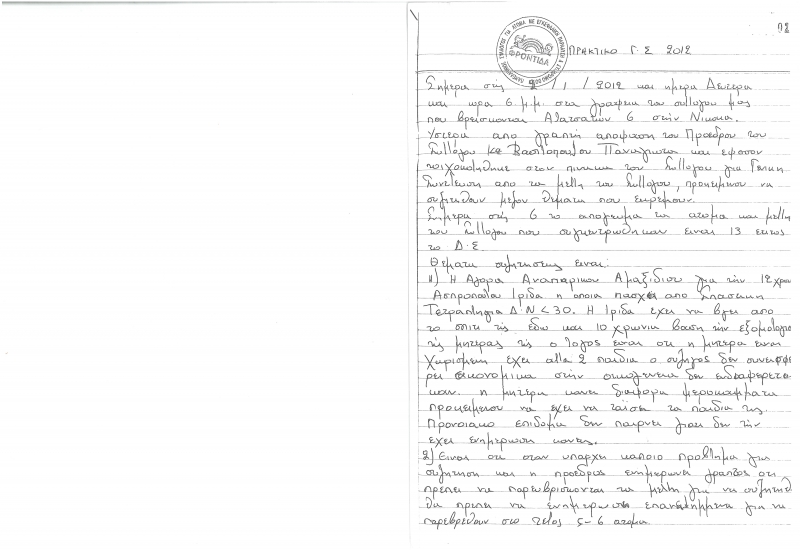 02
ΦΡΟΝΤΙΔΑ
ΠΡΑΚΤΙΚΟ Γ.Σ 2012
Σημερα στις /1/2012 και ημερα Δευτερα
και ωρα 6 μ.μ. στα γραφεια του συλλογου μας
που βρεισκονται Αλατσατων 6 στην Νικαια.
Υστερα απο γραπτη αποφαση του Προεδρου του
Συλλογου κο Βασιλοπουλου Παναγιωτη και εφοσον
τοιχοκοληθηκε στον πινακα του Συλλογου για Γενικη
Συντελευση απο τα μελλη του Συλλογου, προκειμενου να
συζητηθουν μεζον θεματα που εκκρεμουν.
Σημερα στις 6 το απογευμα τα ατομα και μελλη
του Συλλογου που συγκεντρωθηκαν ειναι 13 εκτος
το Δ.Σ
Θεματα συζητησης ειναι:
1) Η Αγορα Αναπηρικου Αμαξιδιου για την 12χρο
Ασπροπουλου Ιριδα η οποια πασχει απο Σπαστικη
Τετραπληγια Δ.Ν < 30. Η Ιριδα εχει να βγει απο
το σπιτι της εδω και 10 χρωνια βαση την εξομολογη
της μητερας της ο λογος ειναι οτι η μητερα ειναι
Χωρισμενη εχει αλλα 2 παιδια ο συζηγος δεν συνεισφε
ρει οικονομικα στην οικογενεια δεν ενδιαφερετε
καν. η μητερα κανει διαφορα μεροκαμματα
προκειμενου να εχει να ταϊσει τα παιδια της.
Προνοιακο επιδομα δεν παιρνει γιατι δεν την
εχει ενημερωση κανεις.
2) Ειναι οτι οταν υπαρχει καποιο προβλημα για
συζητηση και η προεδρος ενημερωνει γραπτος οτι
πρεπει να παρευβρισκονται τα μελλη για να συζητηθ
θα πρεπει να ενημερωση επανηλημμενα για να
παρεβρεθουν στο τελος 5-6 ατομα